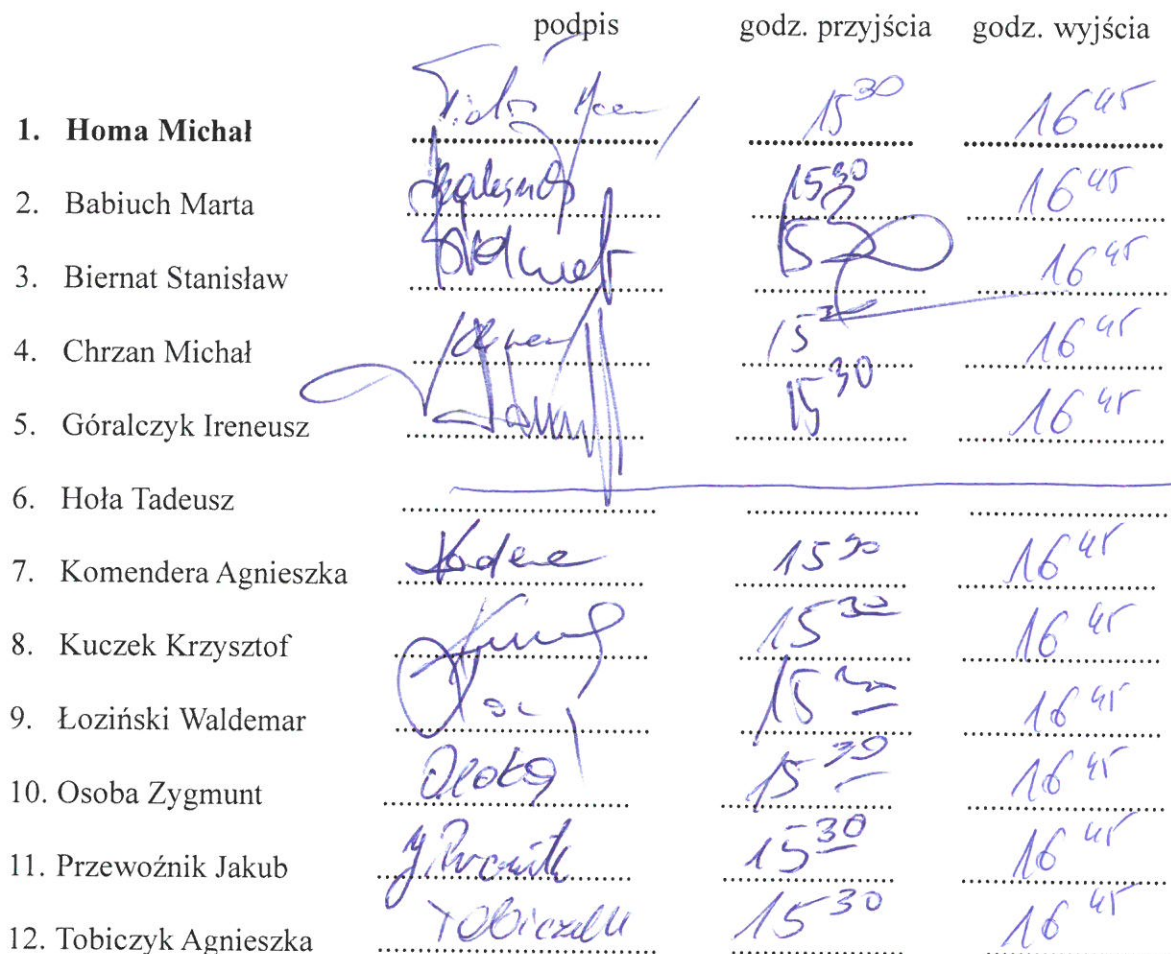 podpis godz. przyjścia godz. wyjścia
1. Homa Michał 15 30 16 45
2. Babiuch Marta 15 30 16 45
3. Biernat Stanisław 15 16 45
4. Chrzan Michał 15 30 16 45
5. Góralczyk Ireneusz 15 30 16 45
6. Hoła Tadeusz
7. Komendera Agnieszka 15 30 16 45
8. Kuczek Krzysztof 15 30 16 45
9. Łoziński Waldemar 15 30 16 45
10. Osoba Zygmunt Osoba 15 30 16 45
11. Przewoźnik Jakub 15 30 16 45
12. Tobiczyk Agnieszka 15 30 16 45